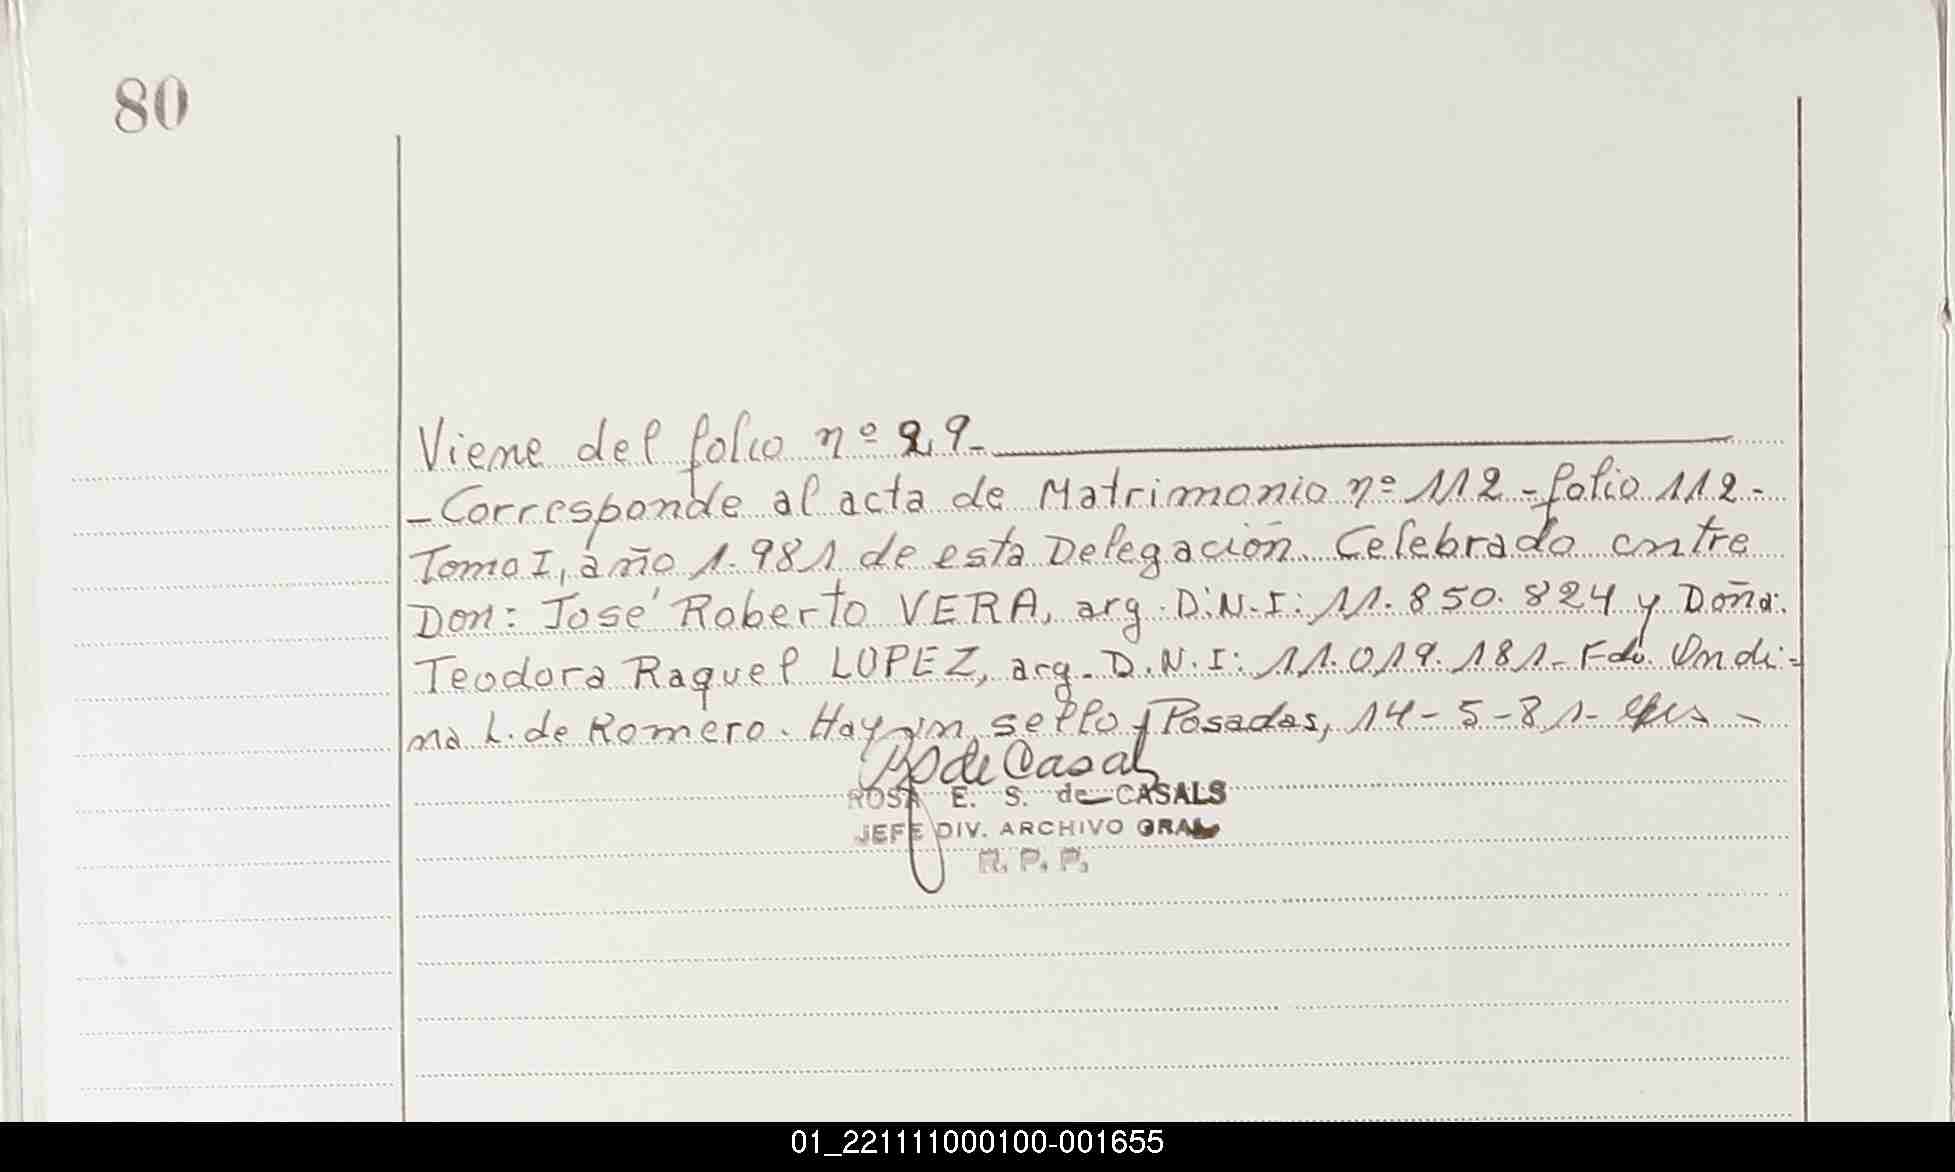 80
Viene del folio nº 29-
- Corresponde al acta de Matrimonio nº 112 - folio 112 -
Tomo I, año 1.981 de esta Delegación. Celebrado entre
Don: José Roberto VERA, arg. D.N.I: 11.850.824 y Doña:
Teodora Raquel LOPEZ, arg. D.N.I: 11.019.181- Fdo. Ondi-
na L. de Romero. Hay un sello. Posadas, 14-5-81-
de Casals
ROSA E. S. de CASALS
JEFE DIV. ARCHIVO GRAL
R. P. P.
01_221111000100-001655